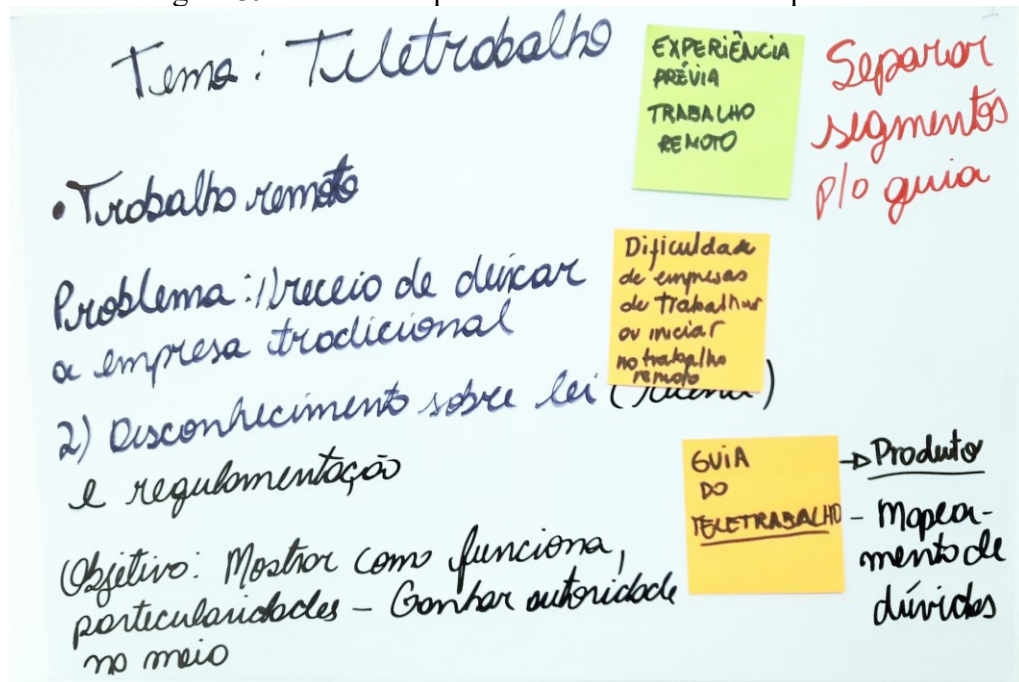 Tema: Teletrabalho
EXPERIÊNCIA
PRÉVIA
TRABALHO
REMOTO
Separar
segmentos
p/o guia
• Trabalho remoto
Problema: 1) receio de deixar
a empresa tradicional
Dificuldade
de empresas
de trabalhar
ou iniciar
no trabalho
remoto
2) Desconhecimento sobre lei
e regulamentação
GUIA
DO
TELETRABALHO
→ Produto
- Mapea-
mento de
dúvidas
Objetivo: Mostrar como funciona,
particularidades - Ganhar autoridade
no meio